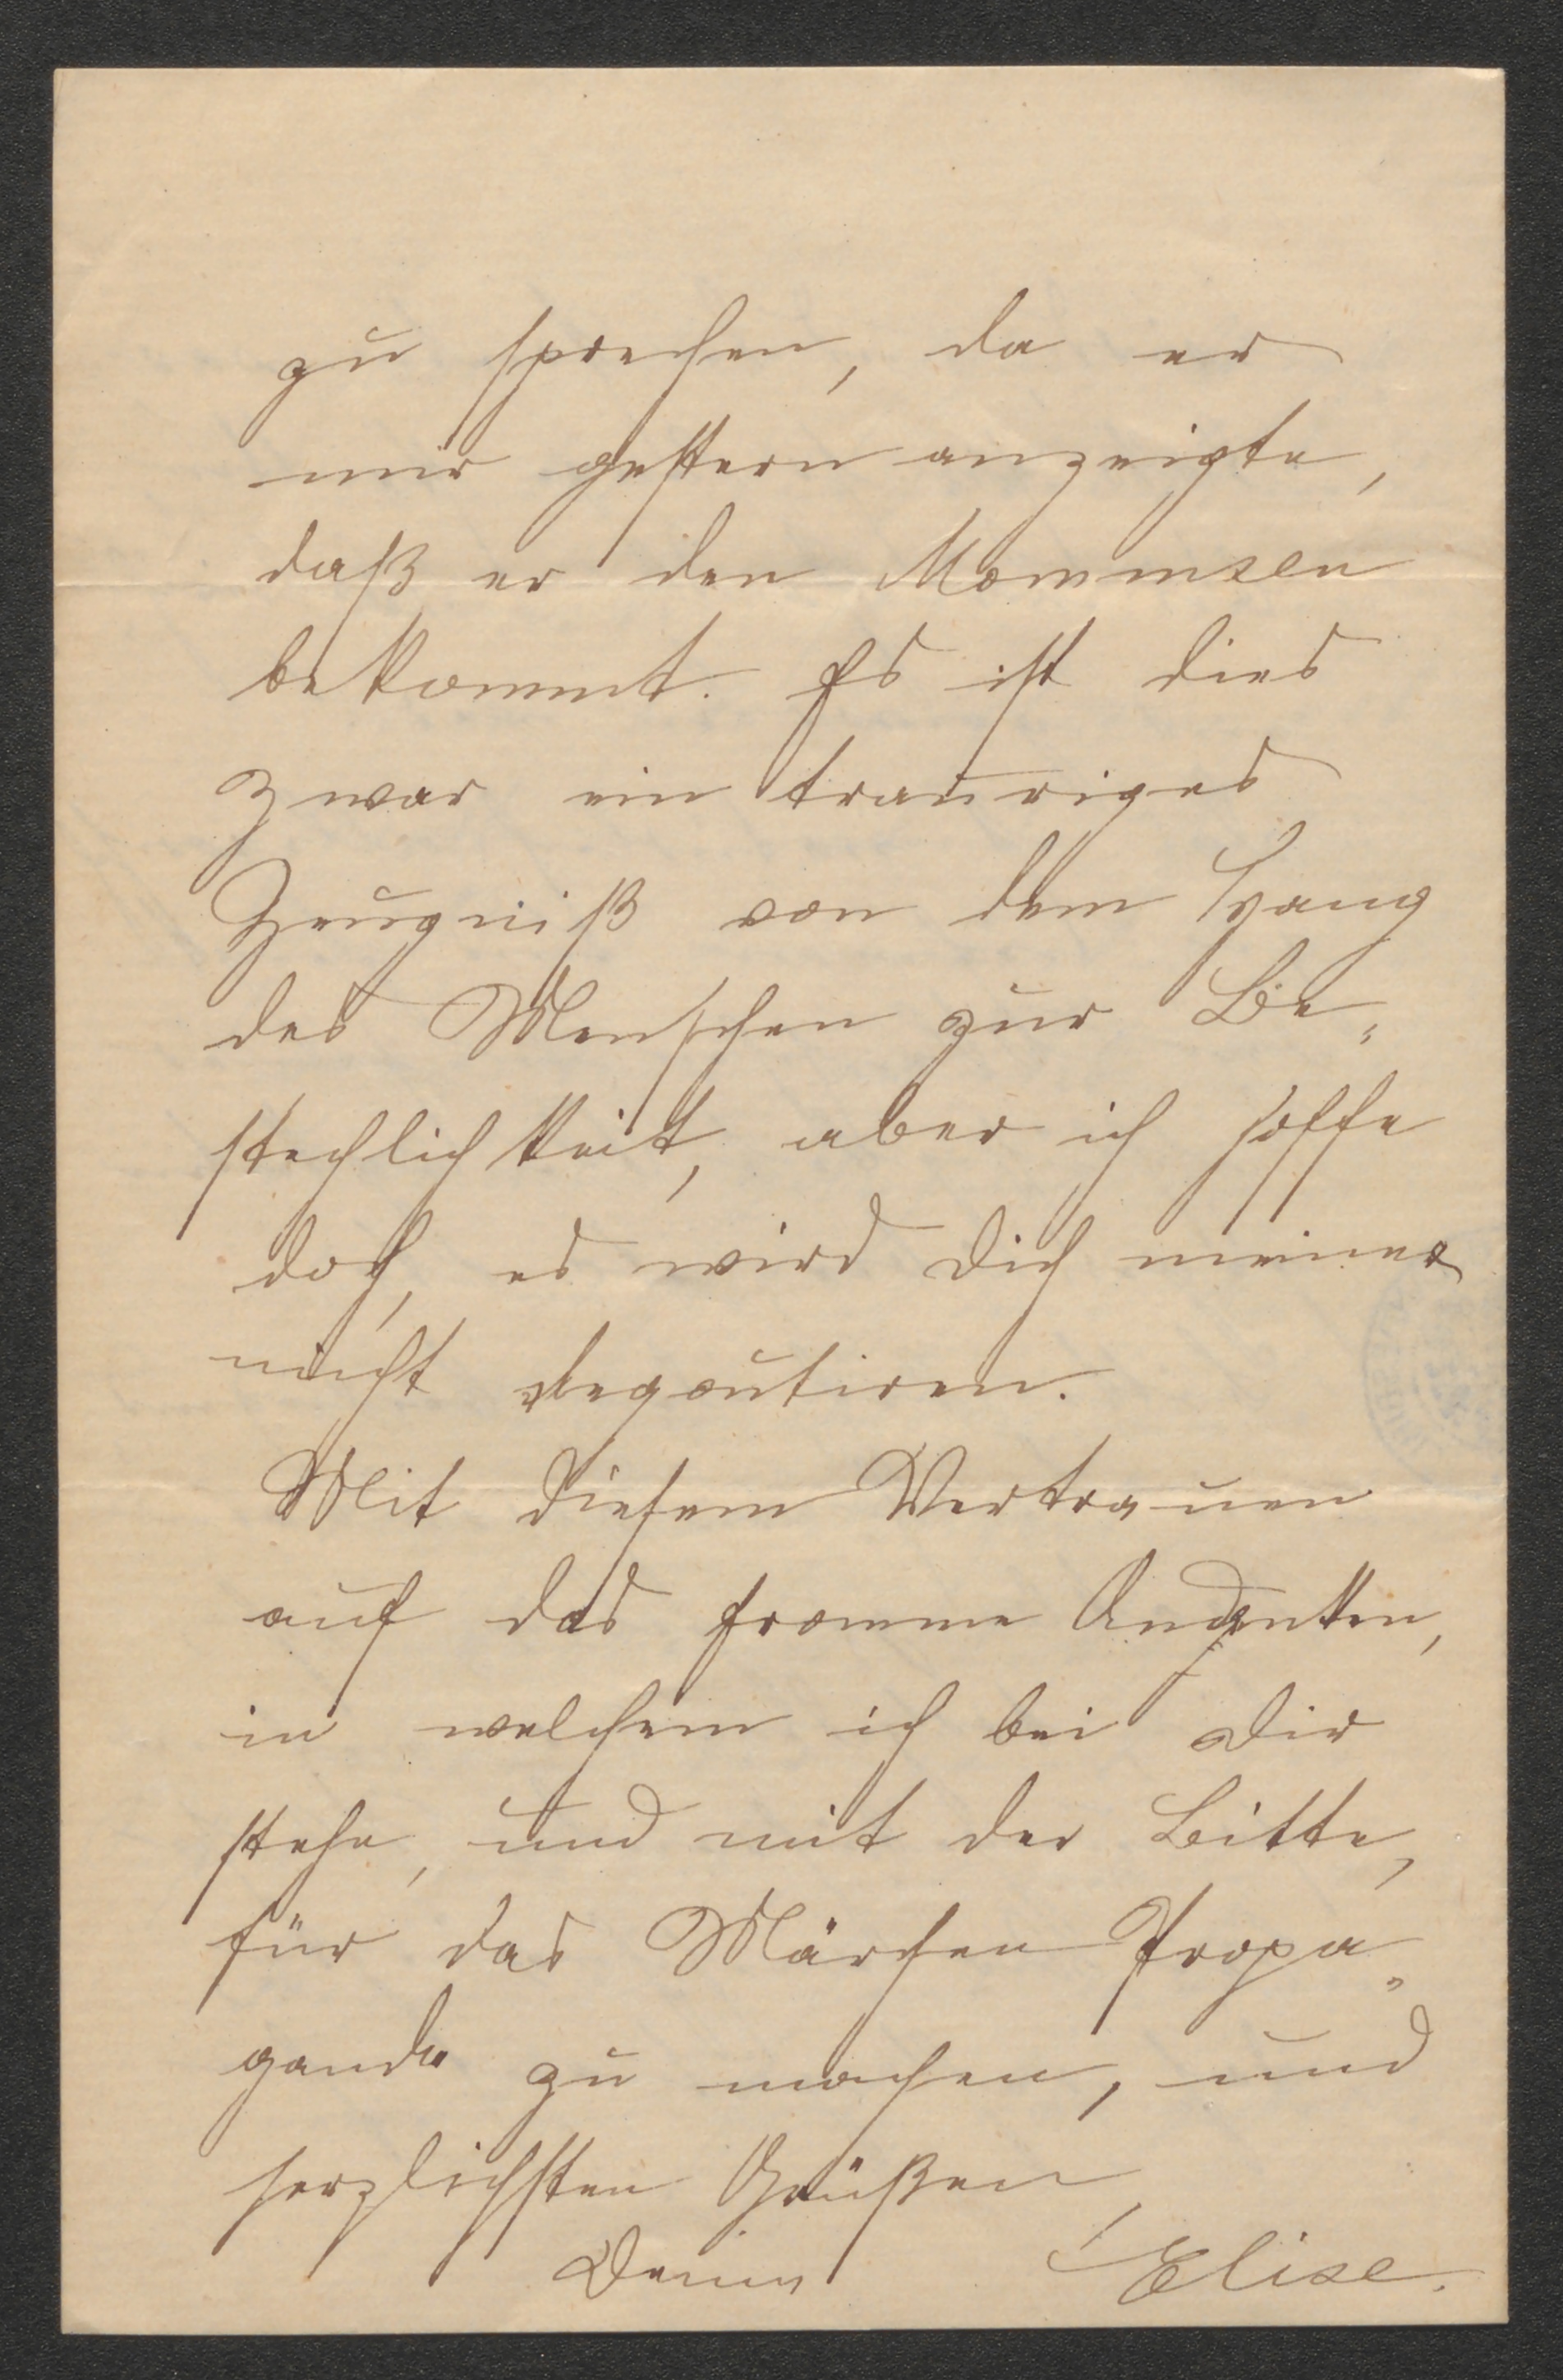 zu sprechen, da er
mir gestern anzeigte,
daß er den Mommsen
bekommt. Es ist dies
zwar ein trauriges
Zeugniß von dem Hang
des Menschen zur Be„
stechlichkeit, aber ich hoffe
doch, es wird Dich meiner
nicht degoutiren.
Mit diesem Vertrauen
auf das fromme Andenken,
in welchem ich bei Dir
stehe, und mit der Bitte,
für das Märchen Propa„
ganda zu machen, und
herzlichsten Grüßen,
Deine Elise.